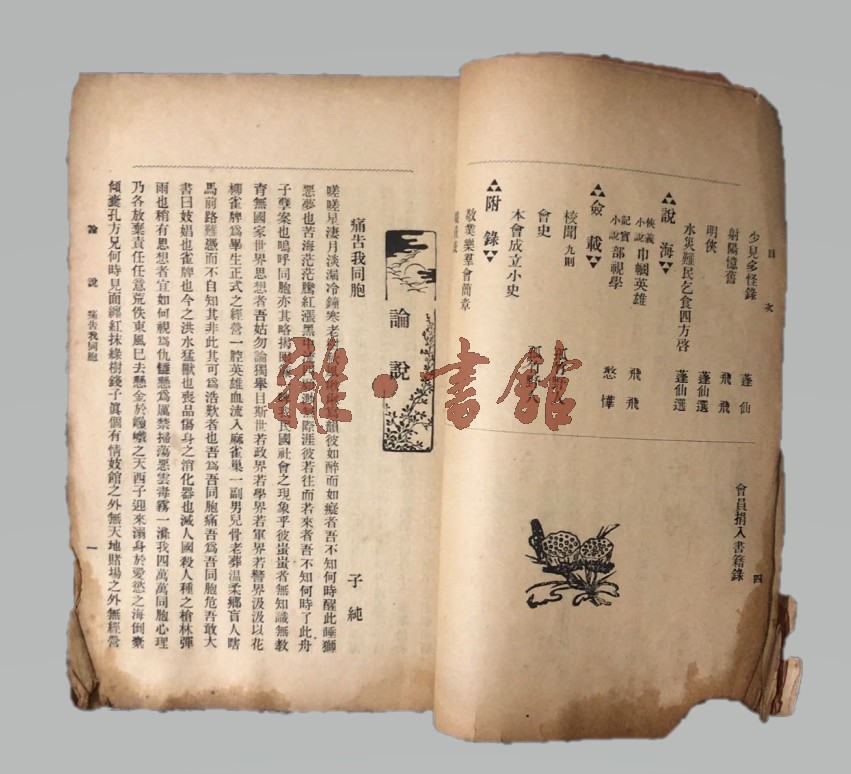 目次
少見多怪錄 蓬仙
射陽憶舊 飛飛
明俠 蓬仙選
水災難民乞食四方啓 蓬仙選
說海
俠義小說 巾幗英雄 飛飛
記實小說 部視學 憨樺
僉載
校聞 九則
會史
本會成立小史
附錄
敬業樂羣會簡章
會員捐入書籍錄
四
論說
痛告我同胞
子純
嗟嗟星淒月淡漏冷鐘寒老
惡夢也苦海茫茫騰紅漲黑中 際涯彼若往而若來者吾不知何時了此舟
子孽案也嗚呼同胞亦其略揭 民國社會之現象乎彼蚩蚩者無知識無敎
育無國家世界思想者吾姑勿論獨舉目斯世若政界若學界若軍界若警界汲汲以花
柳雀牌爲學生正式之經營一腔英雄血流入麻雀巢一副男兒骨老葬温柔鄉盲人瞎
馬前路難憑而不自知其非此其可爲浩歎者也吾爲吾同胞痛吾爲吾同胞危吾敢大
書曰妓娼也雀牌也今之洪水猛獸也喪品傷身之消化器也滅人國殺人種之槍林彈
雨也稍有思想者宜如何視爲仇讎懸爲厲禁掃蕩惡雲毒霧一滌我四萬萬同胞心理
乃各放棄責任任意荒佚東風巳去懸金於 之天西子迎來溺身於愛慾之海倒囊
傾囊孔方兄何時見面纏紅抹綠樹錢子眞個有情妓館之外無天地賭場之外無經營
論說 痛告我同胞
一
雅·書館